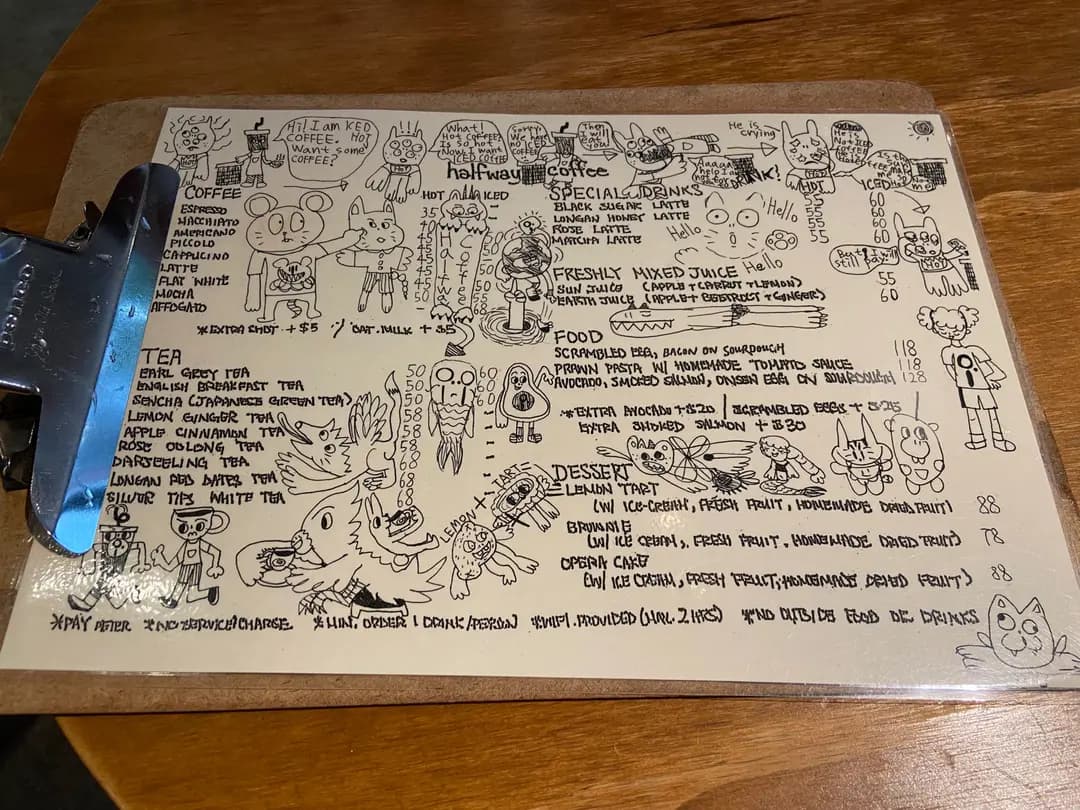 Hi! I am ICED COFFEE. HOT Want some COFFEE?
What! Hot coffee Is so hot Now I want ICED COFFEE
Sorry, We have no ICED coffee
Then I will eat you!
He is crying
halfway coffee
COFFEE
HOT ICED
ESPRESSO 35
MACCHIATO
AMERICANO
PICCOLO
CAPPUCINO
LATTE
FLAT WHITE
MOCHA
AFFOGATO
*EXTRA SHOT + $5 / OAT MILK + $5
Halfway Coffee
SPECIAL DRINKS
HOT ICED
BLACK SUGAR LATTE 55 60
LONGAN HONEY LATTE 55 60
ROSE LATTE 55 60
MATCHA LATTE 55 60
Hello
Hello
Hello
FRESHLY MIXED JUICE
SUN JUICE (APPLE + CARROT + LEMON) 55
EARTH JUICE (APPLE + BEETROOT + GINGER) 60
FOOD
SCRAMBLED EGG, BACON ON SOURDOUGH 118
PRAWN PASTA W/ HOMEMADE TOMATO SAUCE 118
AVOCADO, SMOKED SALMON, ONSEN EGG ON SOURDOUGH 128
*EXTRA AVOCADO + $20 / SCRAMBLED EGGS + $25
EXTRA SMOKED SALMON + $30
TEA
EARL GREY TEA 50 60
ENGLISH BREAKFAST TEA 50 60
SENCHA (JAPANESE GREEN TEA) 50
LEMON GINGER TEA 58
APPLE CINNAMON TEA 58
ROSE OOLONG TEA 58
DARJEELING TEA 68
LONGAN RED DATES TEA 68
SILVER TIPS WHITE TEA 68
LEMON + TART
DESSERT
LEMON TART
(W/ ICE-CREAM, FRESH FRUIT, HOMEMADE DRIED FRUIT) 88
BROWNIE
(W/ ICE CREAM, FRESH FRUIT, HOMEMADE DRIED FRUIT) 78
OPERA CAKE
(W/ ICE CREAM, FRESH FRUIT, HOMEMADE DRIED FRUIT) 88
*PAY *NO SERVICE CHARGE *MIN. ORDER 1 DRINK/PERSON *WIFI PROVIDED (MAX. 2 HRS) *NO OUTSIDE FOOD OR DRINKS